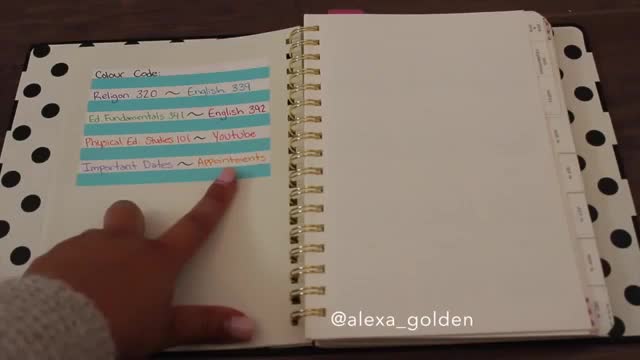 Colour Code:
Religon 320 ~ English 339
Ed. Fundamentals 341 ~ English 392
Physical Ed. Studies 101 ~ Youtube
Important Dates ~ Appointments
@alexa_golden